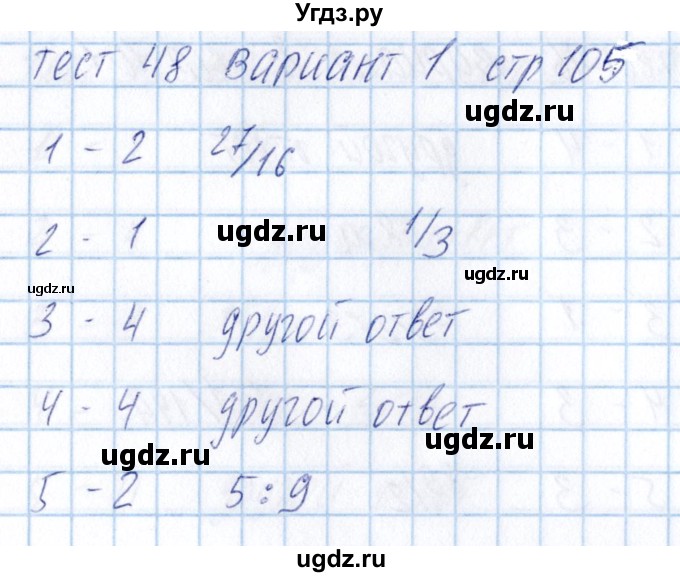 Угдз.ру
Тест 48 Вариант 1 стр 105
ugdz.ru
1 - 2 27/16
ugdz.ru
2 - 1 ugdz.ru 1/3
ugdz.ru
ugdz.ru
3 - 4 другой ответ
4 - 4 другой ответ
ugdz.ru
ugdz.ru
5 - 2 5:9
ugdz.ru